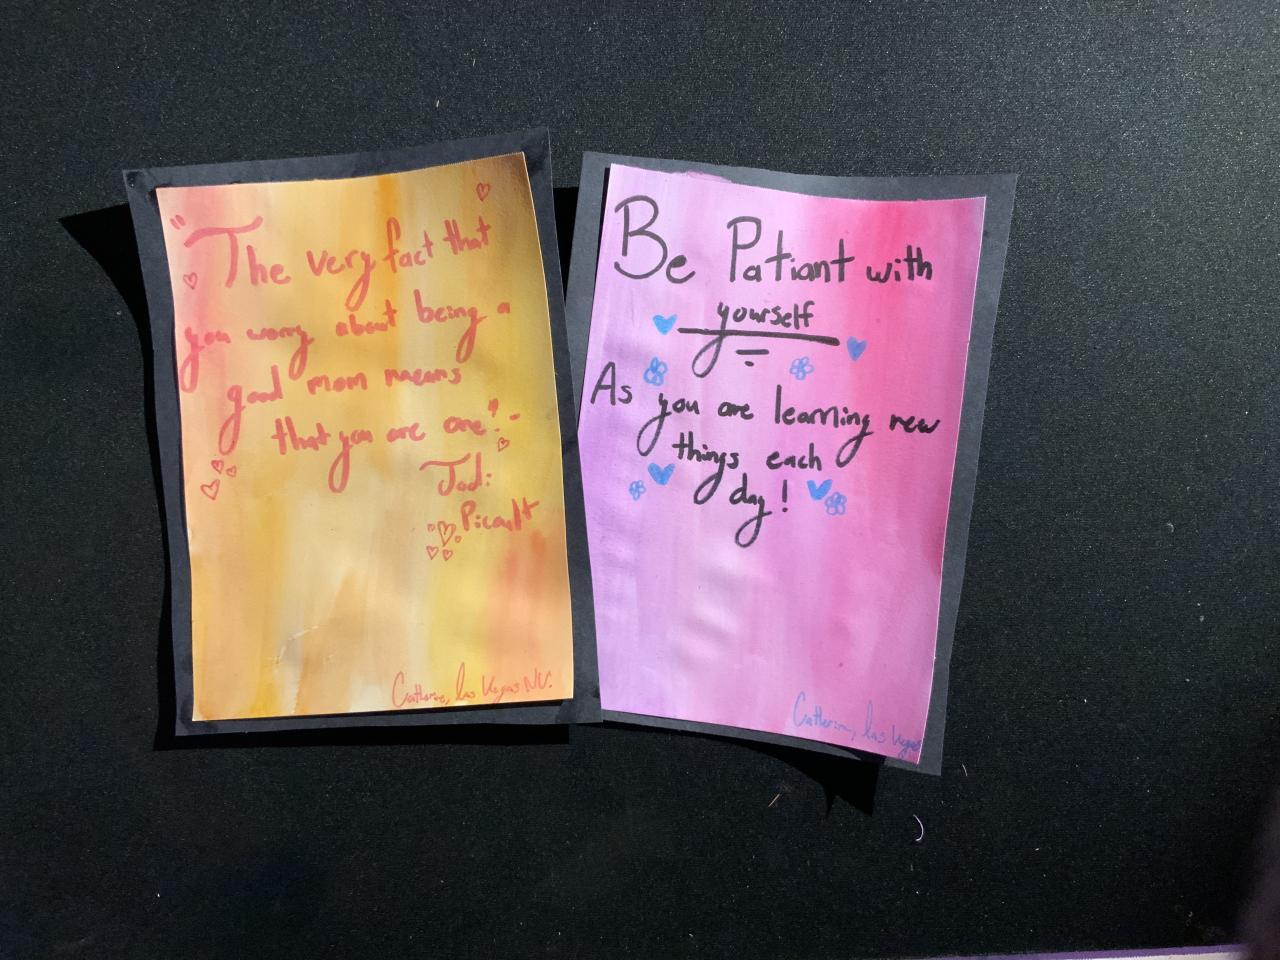 "The very fact that
you worry about being a
good mom means
that you are one! -
Jodi
Picoult
Catherine, las Vegas NV.
Be Patiant with
yourself
As you are learning new
things each
day!
Catherine, las Vegas